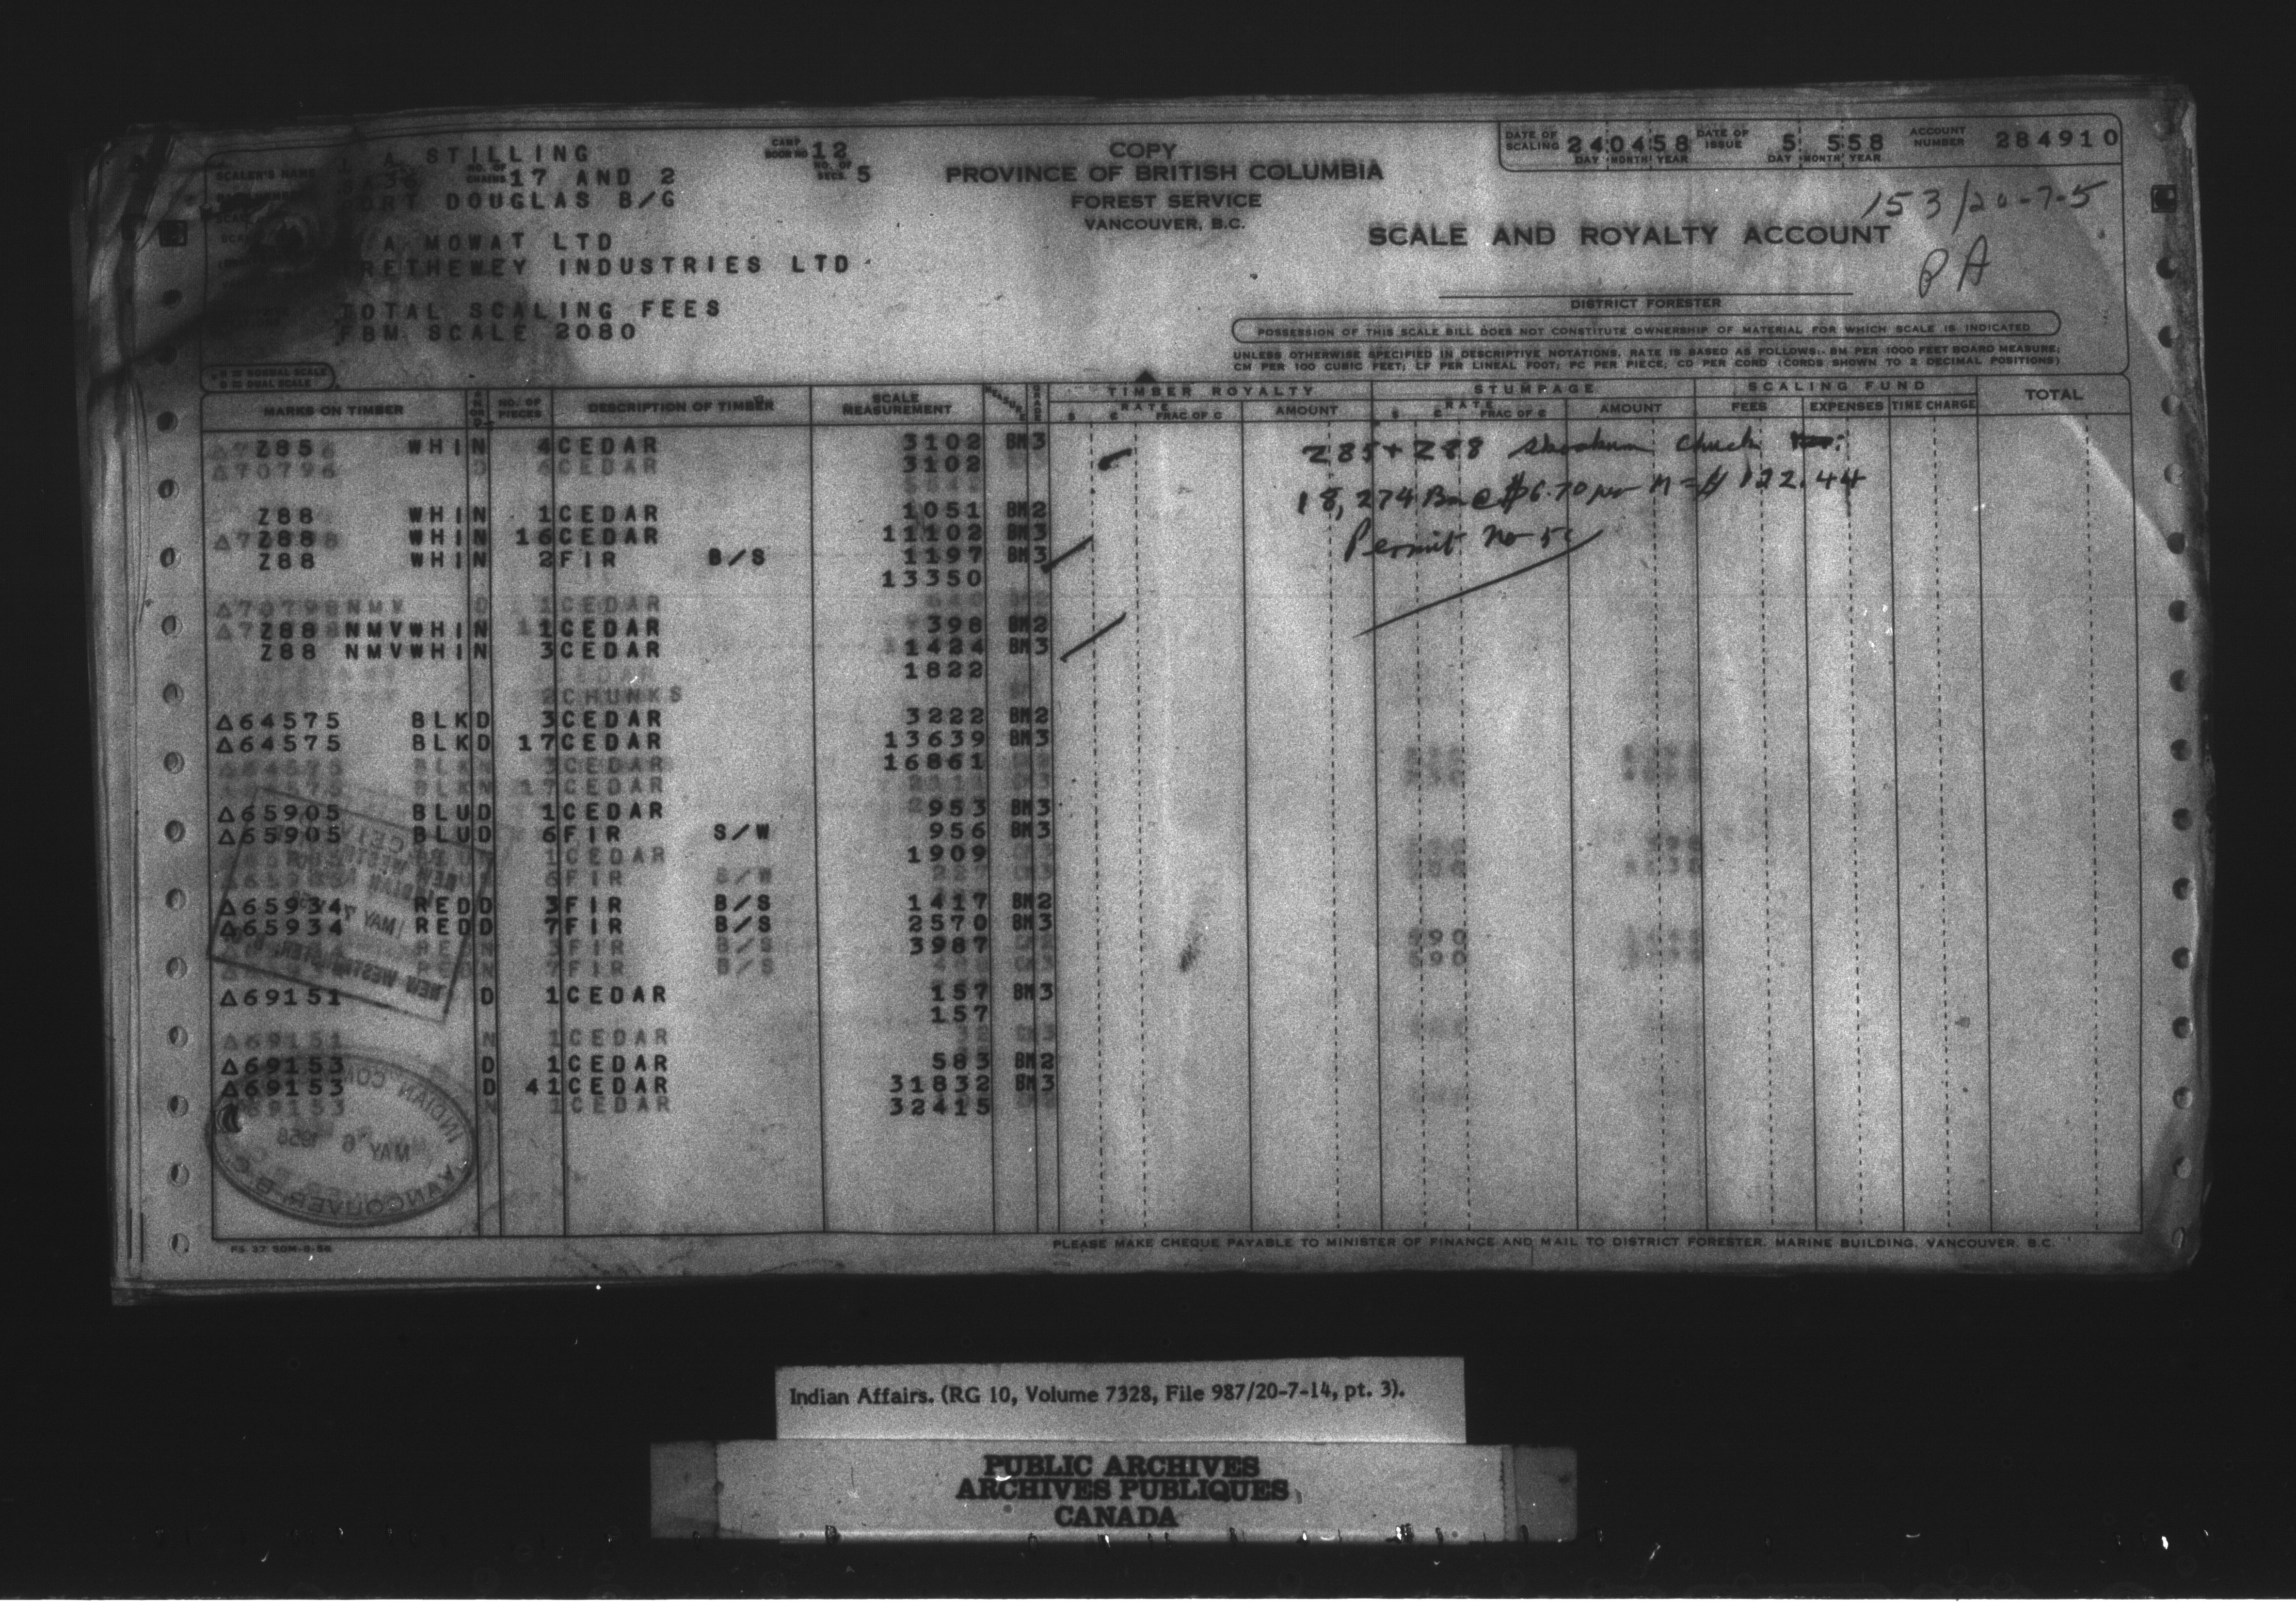 L A STILLING
CAMP BOOM NO 12
NO. OF CHAINS 17 AND 2
NO. OF SECS. 5
PORT DOUGLAS B/G
A MOWAT LTD
TRETHEWEY INDUSTRIES LTD
TOTAL SCALING FEES
FBM SCALE 2080
SCALER'S NAME
COPY
PROVINCE OF BRITISH COLUMBIA
FOREST SERVICE
VANCOUVER, B.C.
DATE OF SCALING 24 04 58
DAY MONTH YEAR
DATE OF ISSUE 5 5 58
DAY MONTH YEAR
ACCOUNT NUMBER 284910
153/20-7-5
SCALE AND ROYALTY ACCOUNT
PA
DISTRICT FORESTER
POSSESSION OF THIS SCALE BILL DOES NOT CONSTITUTE OWNERSHIP OF MATERIAL FOR WHICH SCALE IS INDICATED
UNLESS OTHERWISE SPECIFIED IN DESCRIPTIVE NOTATIONS, RATE IS BASED AS FOLLOWS:- BM PER 1000 FEET BOARD MEASURE;
CM PER 100 CUBIC FEET; LF PER LINEAL FOOT; PC PER PIECE; CD PER CORD (CORDS SHOWN TO 2 DECIMAL POSITIONS)
N = NORMAL SCALE
D = DUAL SCALE
MARKS ON TIMBER
N OR D
NO. OF PIECES
DESCRIPTION OF TIMBER
SCALE MEASUREMENT
MEASURE
GRADE
TIMBER ROYALTY
RATE
$ ¢ FRAC OF ¢
AMOUNT
STUMPAGE
RATE
$ ¢ FRAC OF ¢
AMOUNT
SCALING FUND
FEES
EXPENSES
TIME CHARGE
TOTAL
Z85 WHIN 4 CEDAR 3102 BM3
3102
Z88 WHIN 1 CEDAR 1051 BM2
Z88 WHIN 16 CEDAR 11102 BM3
Z88 WHIN 2 FIR B/S 1197 BM3
13350
Z88 NMVWHIN 1 CEDAR 398 BM2
Z88 NMVWHIN 3 CEDAR 1424 BM3
1822
2 CHUNKS
△64575 BLKD 3 CEDAR 3222 BM2
△64575 BLKD 17 CEDAR 13639 BM3
16861
△65905 BLUD 1 CEDAR 953 BM3
△65905 BLUD 6 FIR S/W 956 BM3
1909
△65934 REDD 3 FIR B/S 1417 BM2
△65934 REDD 7 FIR B/S 2570 BM3
3987
△69151 D 1 CEDAR 157 BM3
157
△69153 D 1 CEDAR 583 BM2
△69153 D 41 CEDAR 31832 BM3
32415
Z85 + Z88 Skookum Chuck
18,274 Bm @ $6.70 per M = $122.44
Permit No
NEW WESTMINSTER, B.C.
MAY 7
INDIAN COM
MAY 6 1958
VANCOUVER B.C.
FS 37 50M-8-56
PLEASE MAKE CHEQUE PAYABLE TO MINISTER OF FINANCE AND MAIL TO DISTRICT FORESTER, MARINE BUILDING, VANCOUVER, B.C.
Indian Affairs. (RG 10, Volume 7328, File 987/20-7-14, pt. 3).
PUBLIC ARCHIVES
ARCHIVES PUBLIQUES
CANADA